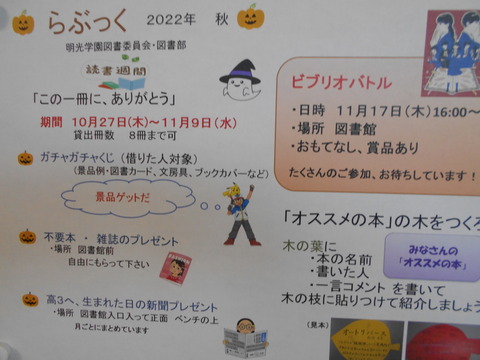 らぶっく 2022年 秋
明光学園図書委員会・図書部
読書週間
「この一冊に、ありがとう」
期間 10月27日(木)～11月9日(水)
貸出冊数 8冊まで可
ガチャガチャくじ (借りた人対象)
(景品例・図書カード、文房具、ブックカバーなど)
景品ゲットだ
不要本 ・ 雑誌のプレゼント
・場所 図書館前
自由にもらって下さい
高3へ、生まれた日の新聞プレゼント
・場所 図書館入口入って正面 ベンチの上
月ごとにまとめています
ビブリオバトル
・日時 11月17日(木)16:00～
・場所 図書館
・おもてなし、賞品あり
たくさんのご参加、お待ちしています!
「オススメの本」の木をつくろ
木の葉に
・本の名前
・書いた人
・一言コメント を書いて
木の枝に貼りつけて紹介しましょう
みなさんの
「オススメの本」
(見本)